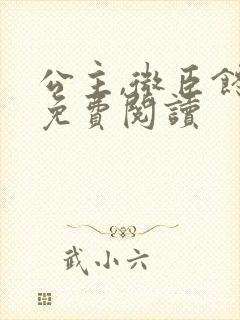 公主,微臣
免費閱讀
武小六